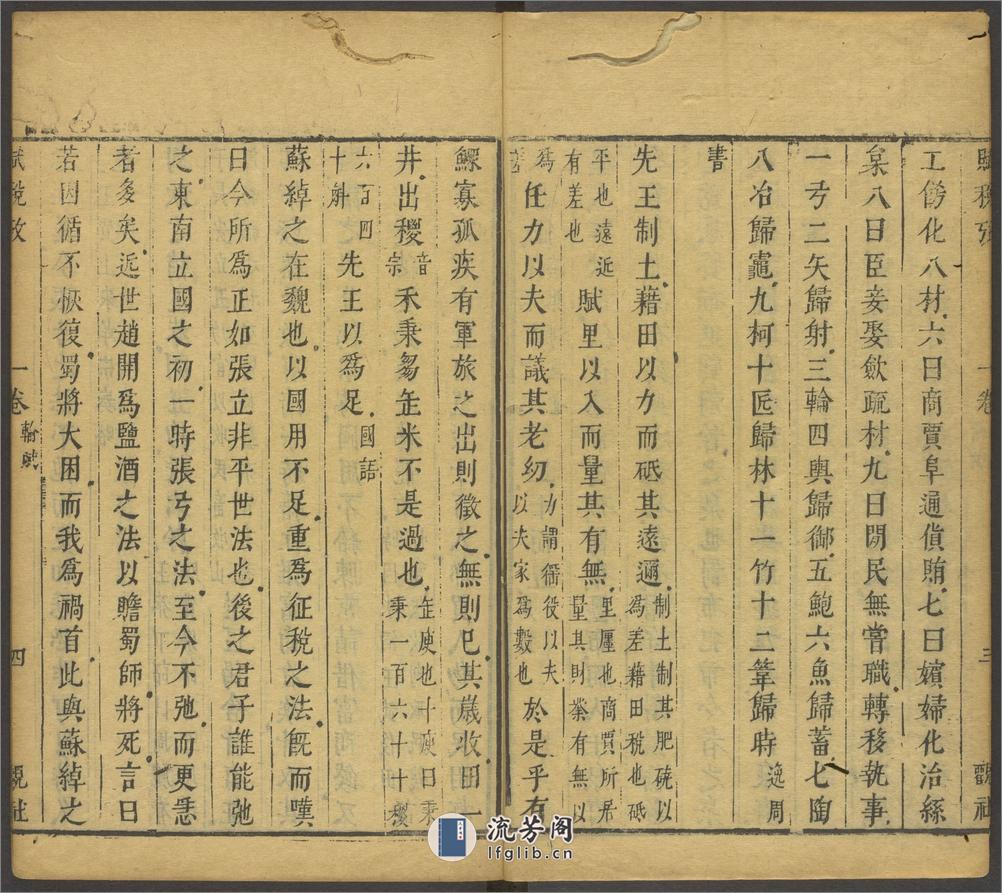 工飭化八材六曰商賈阜通貨賄七曰嬪婦化治絲
枲八曰臣妾娶歛疏材九曰閒民無嘗職轉移執事
一弓二矢歸射三輪四輿歸御五鮑六魚歸蓄七陶
八冶歸竈九柯十匠歸林十一竹十二葦歸時逸周
書
先王制土藉田以力而砥其遠邇制土制其肥磽以爲差藉田稅也砥
平也遠近有差也賦里以入而量其有無里廛也商賈所居量其財業有無以
爲任力以夫而議其老幼力謂徭役以夫以夫家爲數也於是乎有
鰥寡孤疾有軍旅之出則徵之無則已其歲收田一
井出稷音宗禾秉芻缶米不是過也缶庾也十庾曰秉秉一百六十十稷
六百四十斛先王以爲足國語
蘇綽之在魏也以國用不足重爲征稅之法旣而嘆
曰今所爲正如張立非平世法也後之君子誰能弛
之東南立國之初一時張弓之法至今不弛而更急
者多矣近世趙開爲鹽酒之法以贍蜀師將死言曰
若因循不恢復蜀將大困而我爲禍首此與蘇綽之
賦稅攷
一卷
輸賦
四
觀社
一卷
三
觀社
流芳阁
lfglib.cn